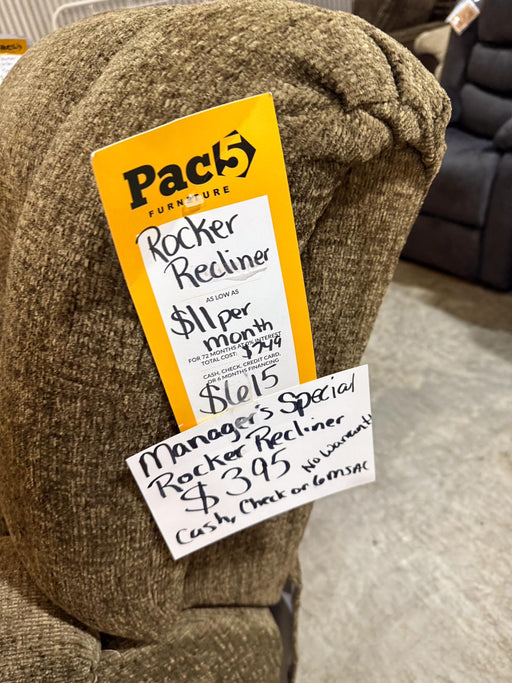 Pac5
FURNITURE
Rocker
Recliner
AS LOW AS
$11 per
month
FOR 72 MONTHS AT 0% INTEREST
TOTAL COST: $749
CASH, CHECK, CREDIT CARD,
OR 6 MONTHS FINANCING
$615
Manager's Special
Rocker Recliner
$395 No Warranty
Cash, Check or 6MSAC